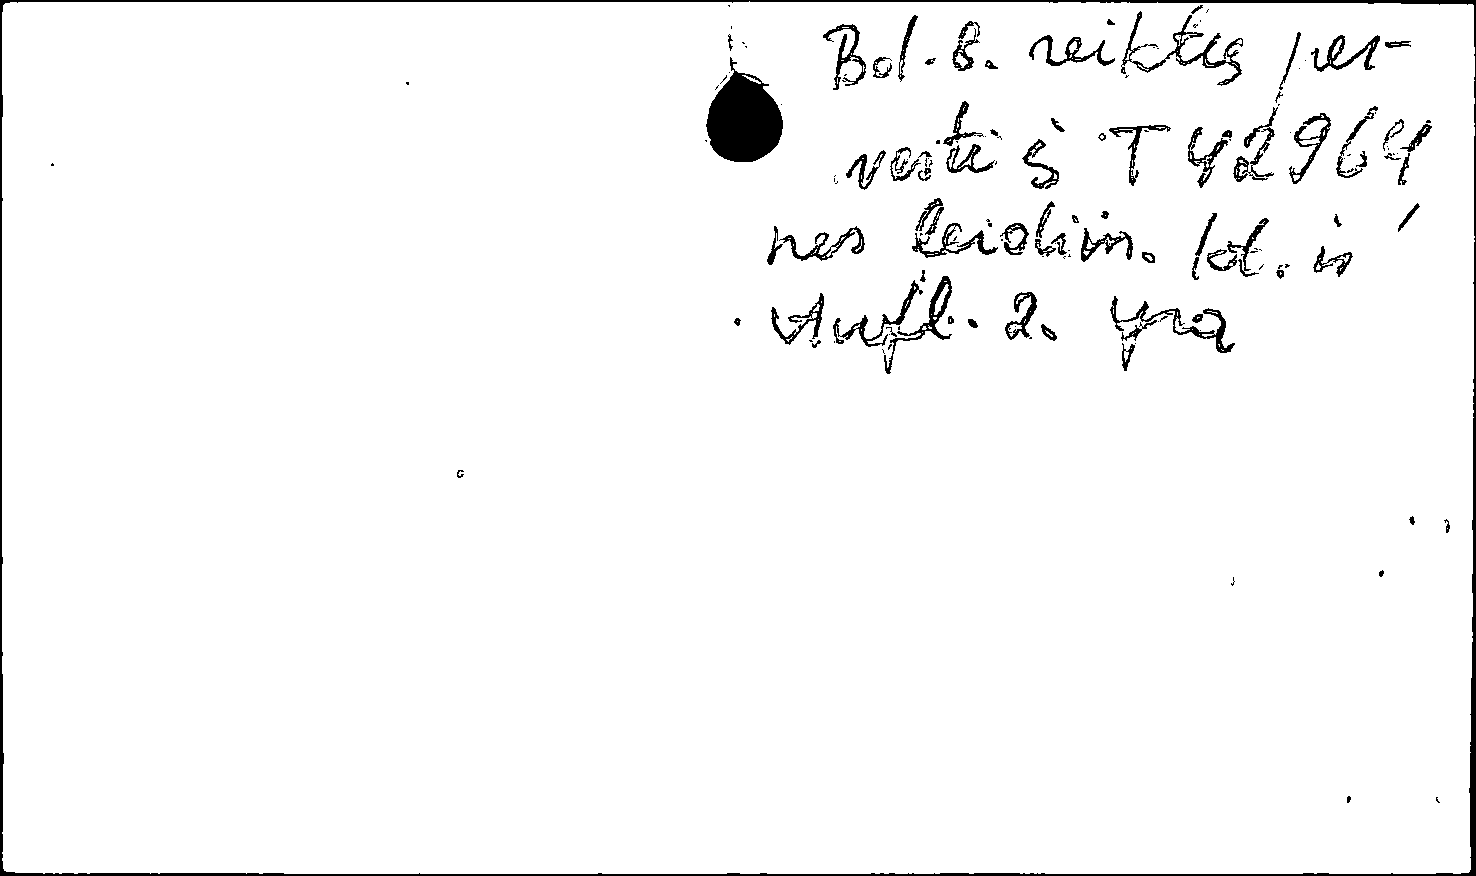 Bd. 8. reiktų per-
vesti į T 42964
nes leidim. kt. ir
Aufl. 2. yra